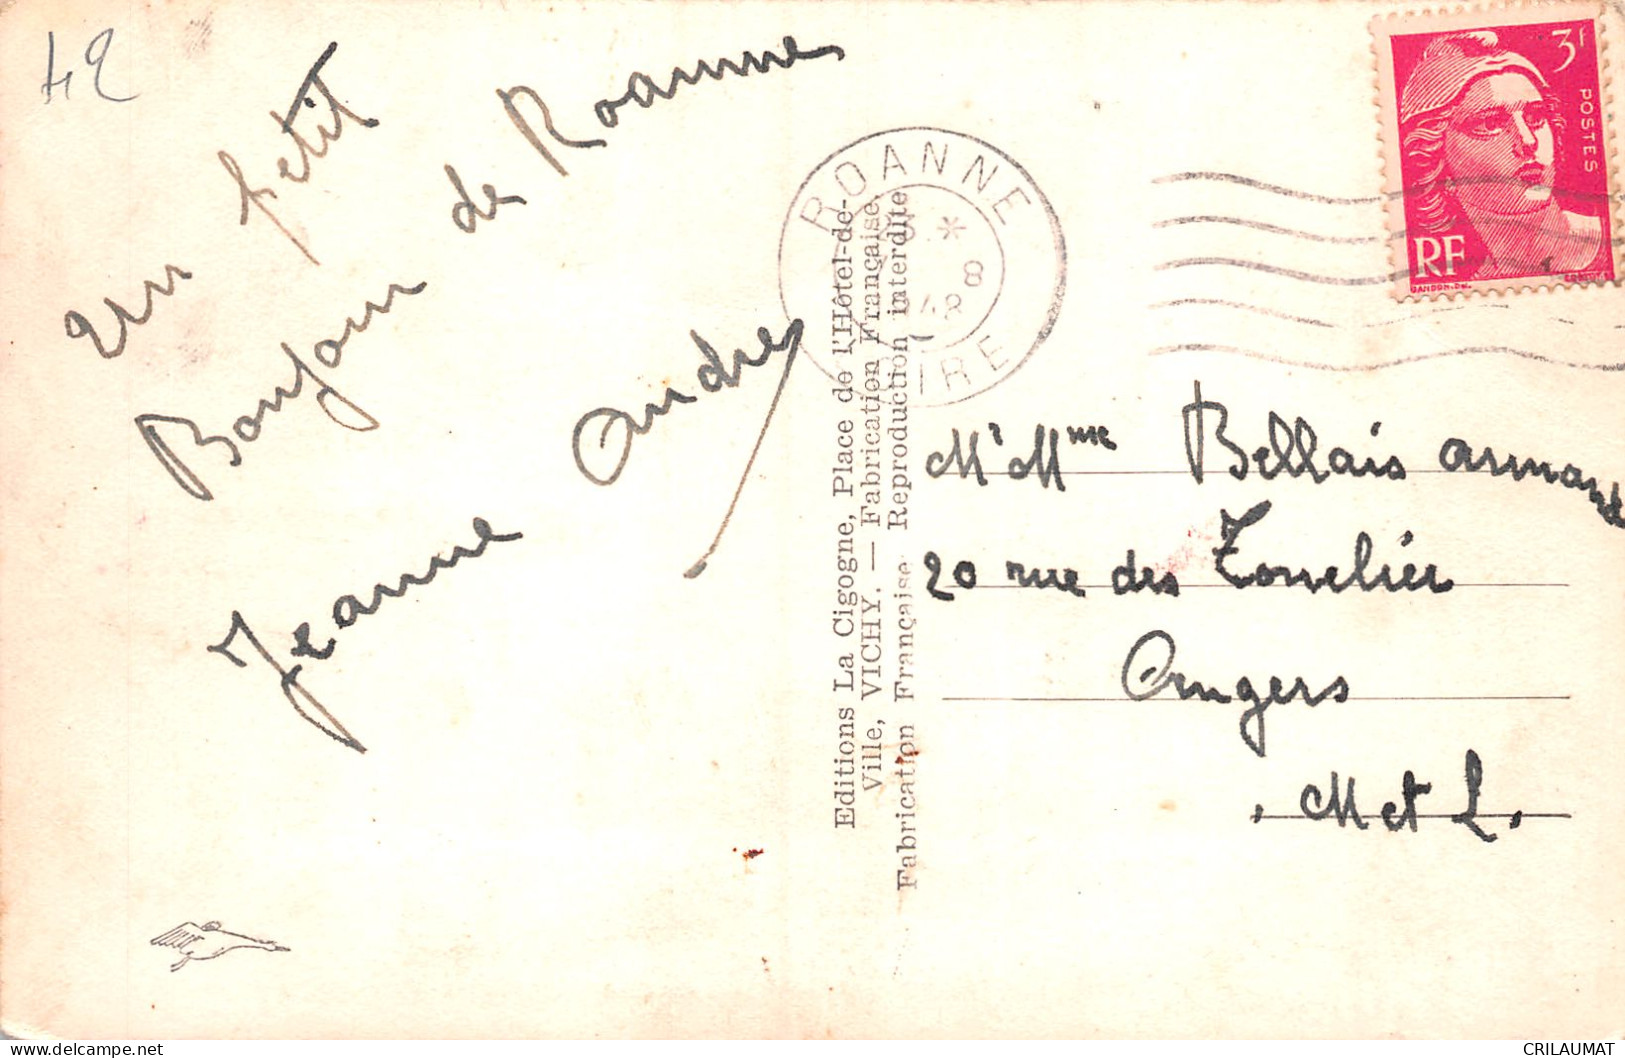 42
Un petit
Bonjour de Roanne
Jeanne André
Editions La Cigogne, Place de l'Hôtel-de-
Ville, VICHY. — Fabrication Française
Fabrication Française Reproduction interdite
ROANNE
8
LOIRE
3f
POSTES
RF
GANDON
Mr Mme Bellais Armand
20 rue des Tonelier
Angers
M et L.
CRILAUMAT